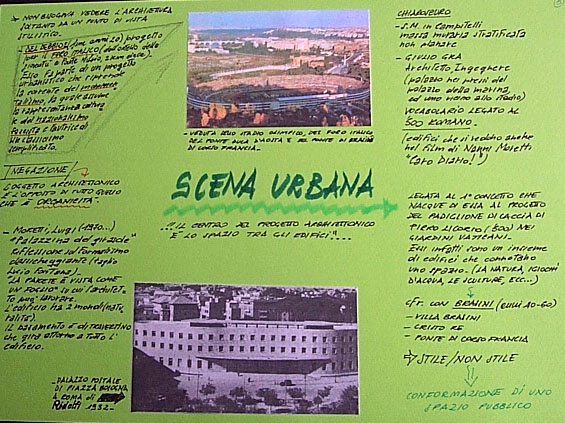 NON BISOGNA VEDERE L'ARCHITETTURA
SOLTANTO DA UN PUNTO DI VISTA
STILISTICO.
DEL DEBBIO (fine anni 20) progetto
per il FORO ITALICO
Esso fa parte di un progetto
urbanistico che riprende
la corrente del
la quale assume
la rappresentanza
del nazionalismo
fascista
un classicismo
semplificato.
NEGAZIONE
L'OGGETTO ARCHITETTONICO
E' L'OPPOSTO DI TUTTO QUELLO
CHE E' ORGANICITA'
- MORETTI, LUIGI
e palazzina del "girasole"
riflessione sul formalismo
classicheggiante (taglio
Lucio Fontana).
"LA PARETE E' VISTA COME
UN FOGLIO" in cui l'archi
L'edificio ha 2 mondi
IL BASAMENTO E' DI TRAVERTINO
che gira attorno a tutto l'
edificio.
- PALAZZO POSTALE
DI PIAZZA BOLOGNA
A ROMA di
Ridolfi 1932
- VEDUTA DELLO STADIO OLIMPICO, DEL FORO ITALICO
DEL PONTE DUCA D'AOSTA E DEL PONTE DI
DI CORSO FRANCIA.
SCENA URBANA
..."IL CENTRO DEL PROGETTO ARCHITETTONICO
E' LO SPAZIO TRA GLI EDIFICI"...
CHIAROSCURO
S.M. in Campitelli
massa muraria stratificata
non planare
- GIULIO GRA
Architetto Ingegnere
(palazzo nei pressi del
palazzo della marina,
ed uno vicino allo stadio)
VOCABOLARIO LEGATO AL
'500 ROMANO.
(edifici che si vedono anche
nel film di Nanni Moretti
"Caro Diario!")
LEGATA AL CONCETTO CHE
NACQUE DI ESSA AL PROGETTO
DEL PADIGLIONE DI CACCIA DI
PIERO LIGORIO ('500) NEI
GIARDINI VATICANI.
Essi infatti sono un insieme
di edifici che connotano
uno spazio. (LA NATURA, I GIOCHI
D'ACQUA, LE SCULTURE, ECC...)
cfr. con BRASINI
- VILLA BRASINI
- CRISTO RE
- PONTE DI CORSO FRANCIA
STILE/NON STILE
CONFORMAZIONE DI UNO
SPAZIO PUBBLICO